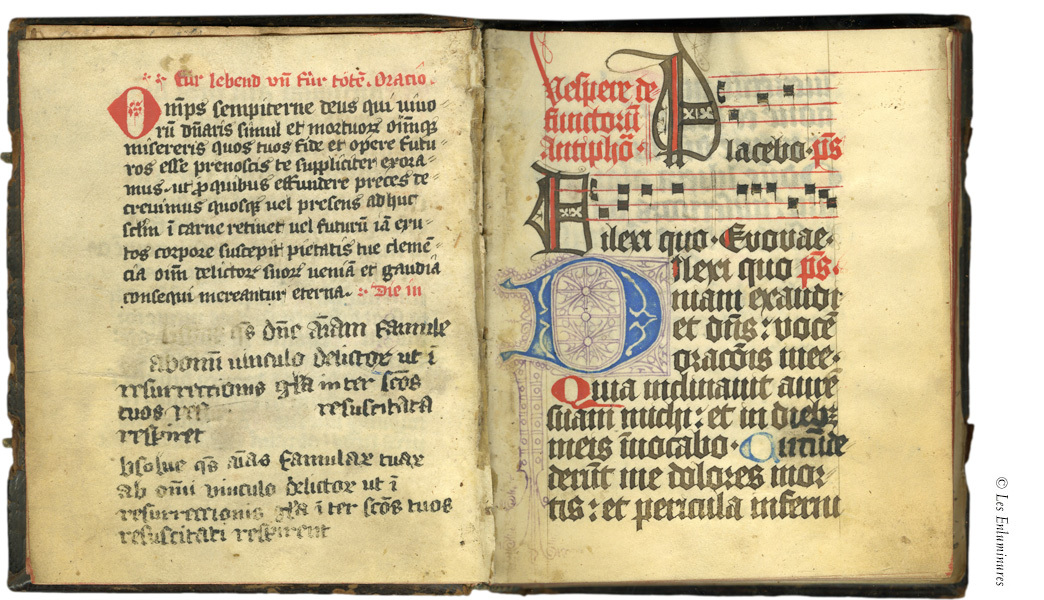 für lebend vñ für totē. Oracio.
Omps sempiterne deus qui uiuo
rū dñaris simul et mortuorꝫ oīmqꝫ
misereris quos tuos fide et opere futu
ros esse prenoscis te suppliciter exora-
mus. ut ꝓ quibus effundere preces de-
creuimus quosqꝫ uel presens adhuc
sclm ī carne retinet uel futurū iā exu-
tos corpore suscepit pietatis tue clemē-
cia oīm delictorꝫ suorꝫ ueniā et gaudia
consequi mereantur eterna. Die in
qs dñe aīam famule
ab omī uinculo delictorꝫ ut ī
resurrectionis gła inter scōs
tuos res resuscitata
respiret
bsolue qs aīas famularꝫ tuarꝫ
ab omī vinculo delictorꝫ ut ī
resurrectionis gła ī ter scōs tuos
resuscitati respirent
Vespere de
functorū
Antiphō
Placebo. ps
Dilexi quo. Evovae.
Dilexi quo ps.
niam exaudi
et dñs: vocē
oracōis mee.
Quia inclinauit aurē
suam michi: et in diebꝫ
meis īuocabo. Circūde
derūt me dolores mor-
tis: et pericula inferni
© Les Enluminures